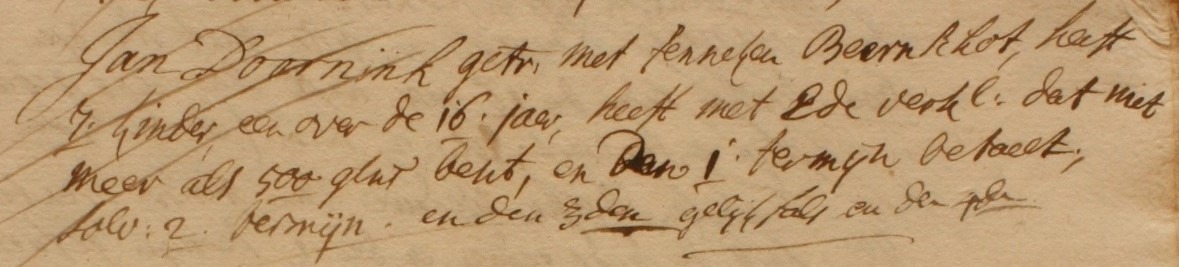 Jan Doornink getr. met Jenneken Beernkhot, heeft
7. kinder, een over de 16. jaer, heeft met Ede verkl: dat niet
meer als 500 glns besit, en Den 1. termijn betaelt,
solv: 2. termijn. en den 3den gelijkfals en den 4den